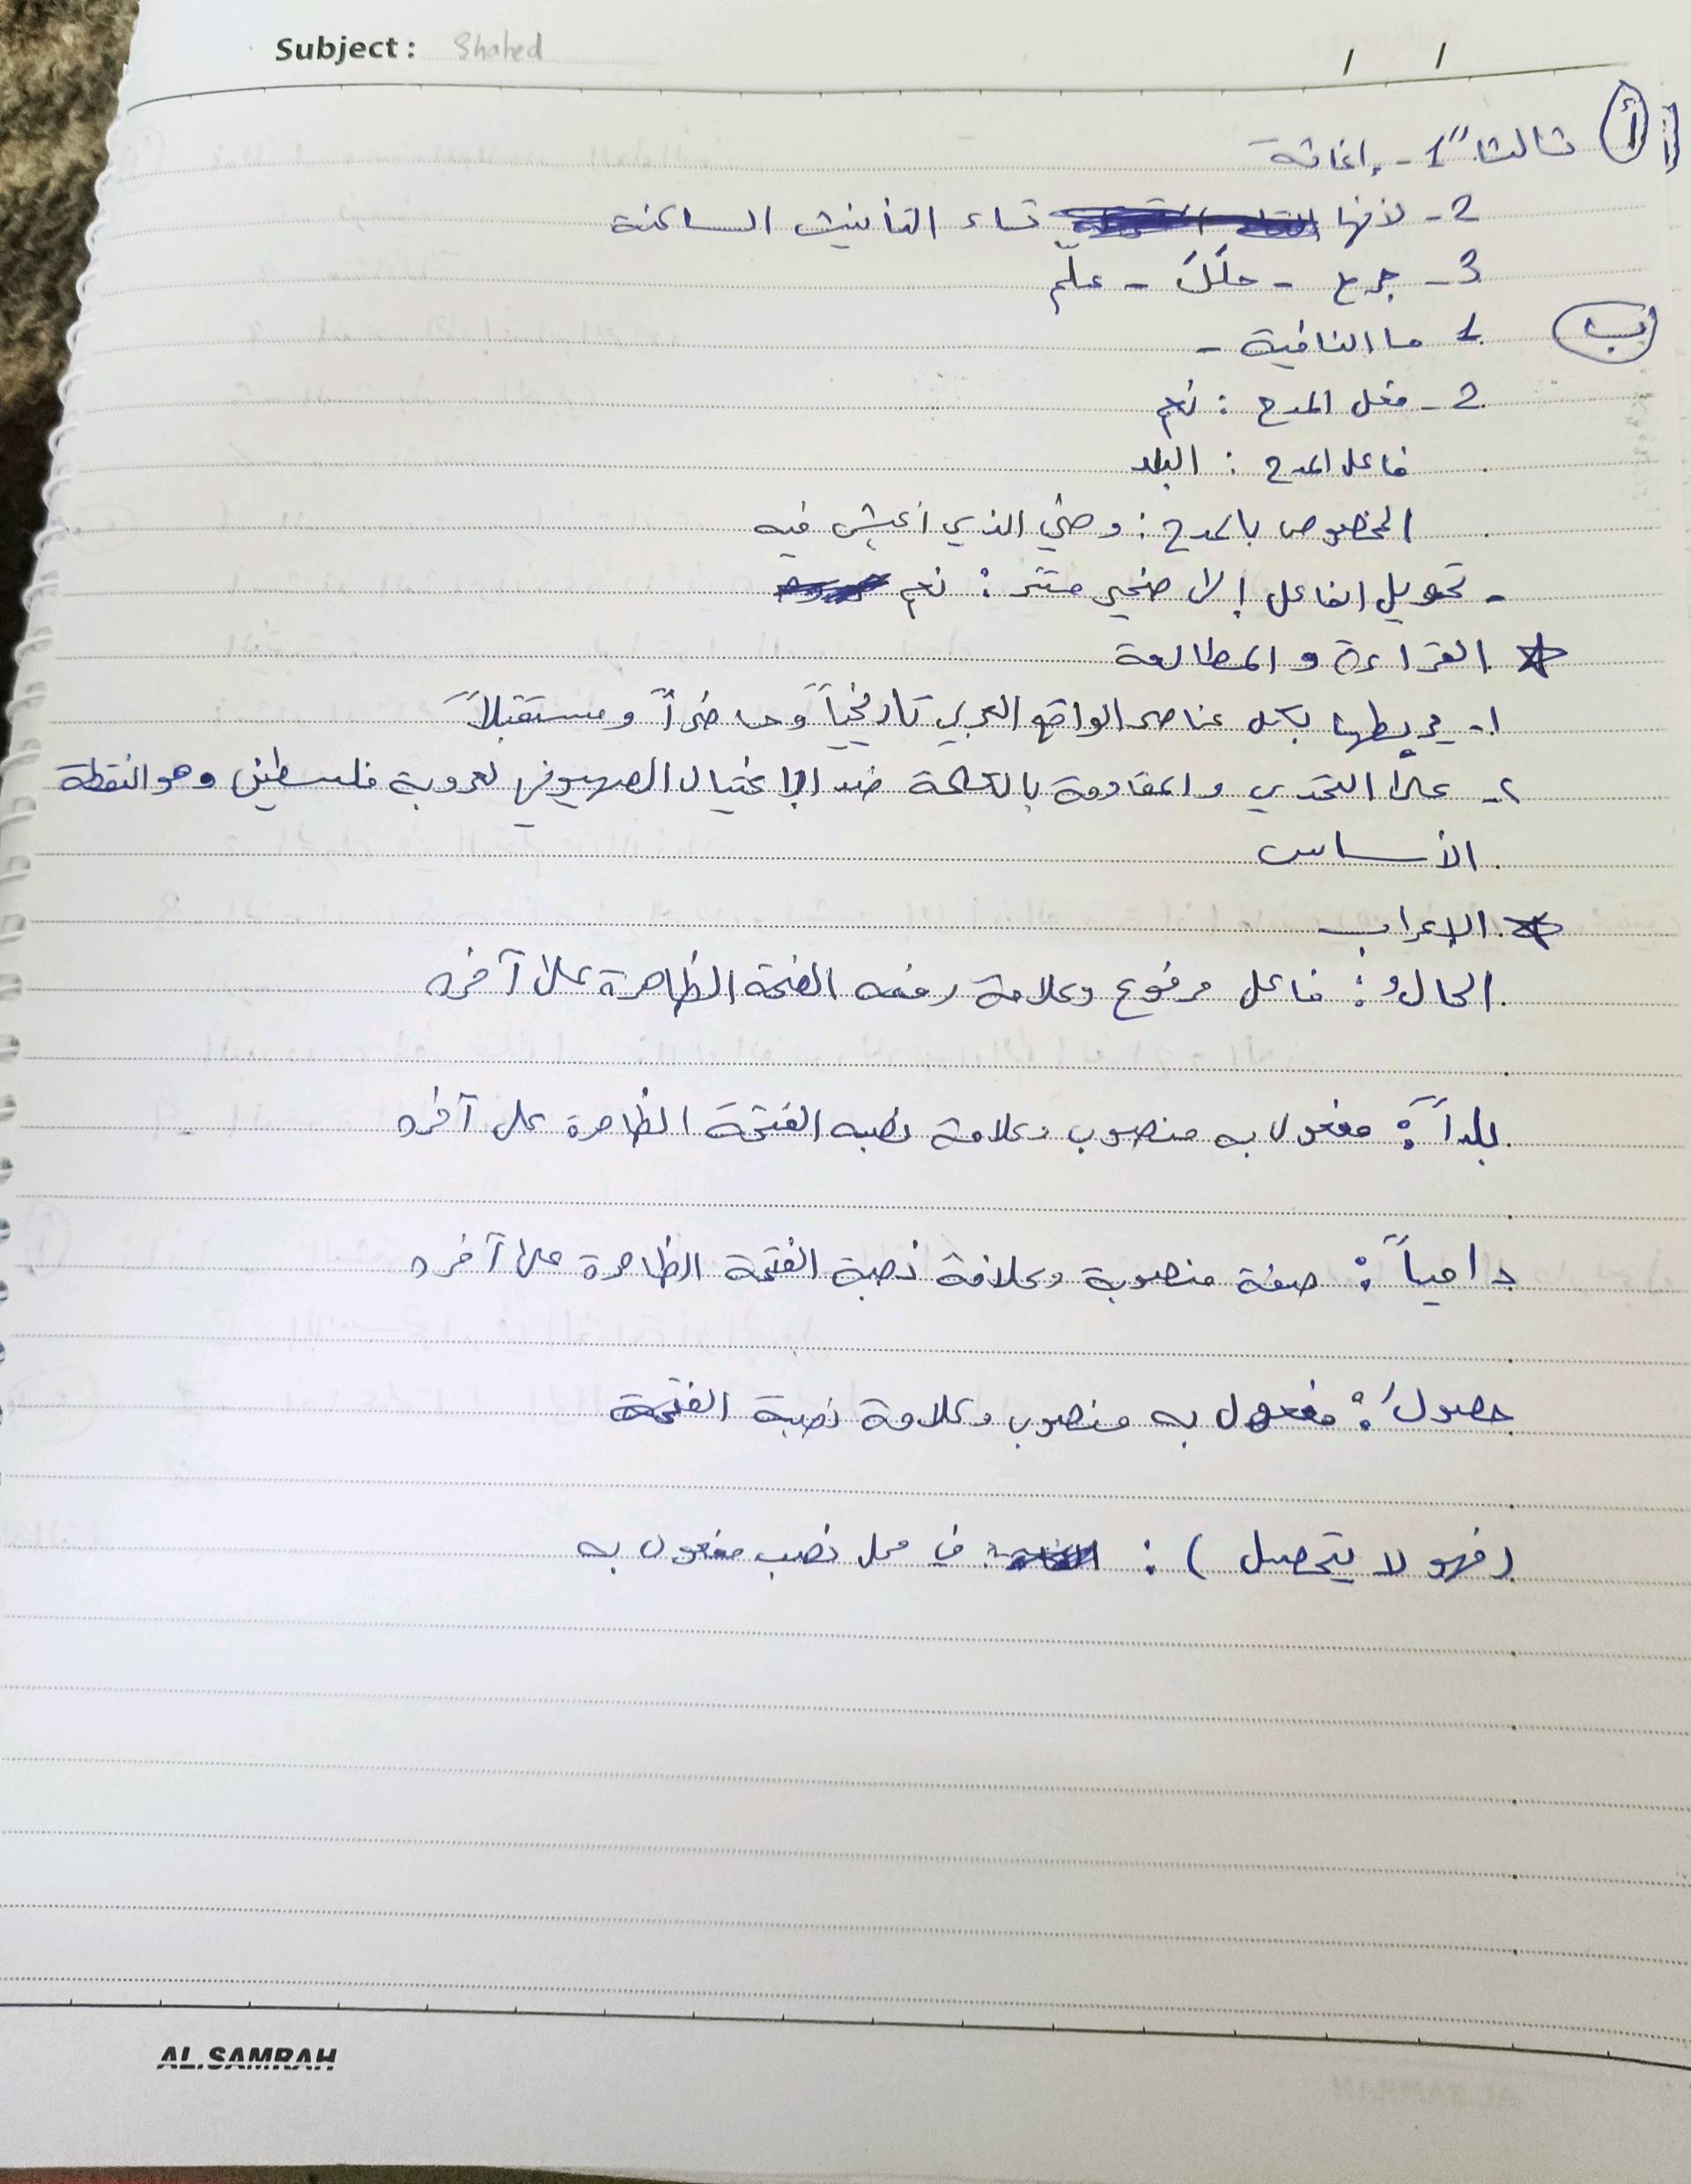 Subject: Shahed
/ /
أ ثالثاً 1- إغاثة
2- لأنها تاء التأنيث الساكنة
3- جمع - حلَّلَ - علّم
ب 1 ما النافية -
2- فعل المدح : نعم
فاعل المدح : البلد
المخصوص بالمدح : وطني الذي أعيش فيه
- تحويل الفاعل إلى ضمير مستتر : نعم
القراءة و المطالعة
١- يربطها بكل عناصر الواقع العربي تاريخياً وحاضراً ومستقبلاً
٢- على التحدي والمقاومة بالكلمة ضد الإغتيال الصهيوني لعروبة فلسطين وهو النقطة
الأساس
الإعراب
الحالُ : فاعل مرفوع وعلامة رفعه الضمة الظاهرة على آخره
بلداً : مفعول به منصوب وعلامة نصبه الفتحة الظاهرة على آخره
دامياً : صفة منصوبة وعلامة نصبة الفتحة الظاهرة على آخره
حصولَ : مفعول به منصوب وعلامة نصبة الفتحة
(فهو لا يتحصل) : في محل نصب مفعول به
AL.SAMRAH